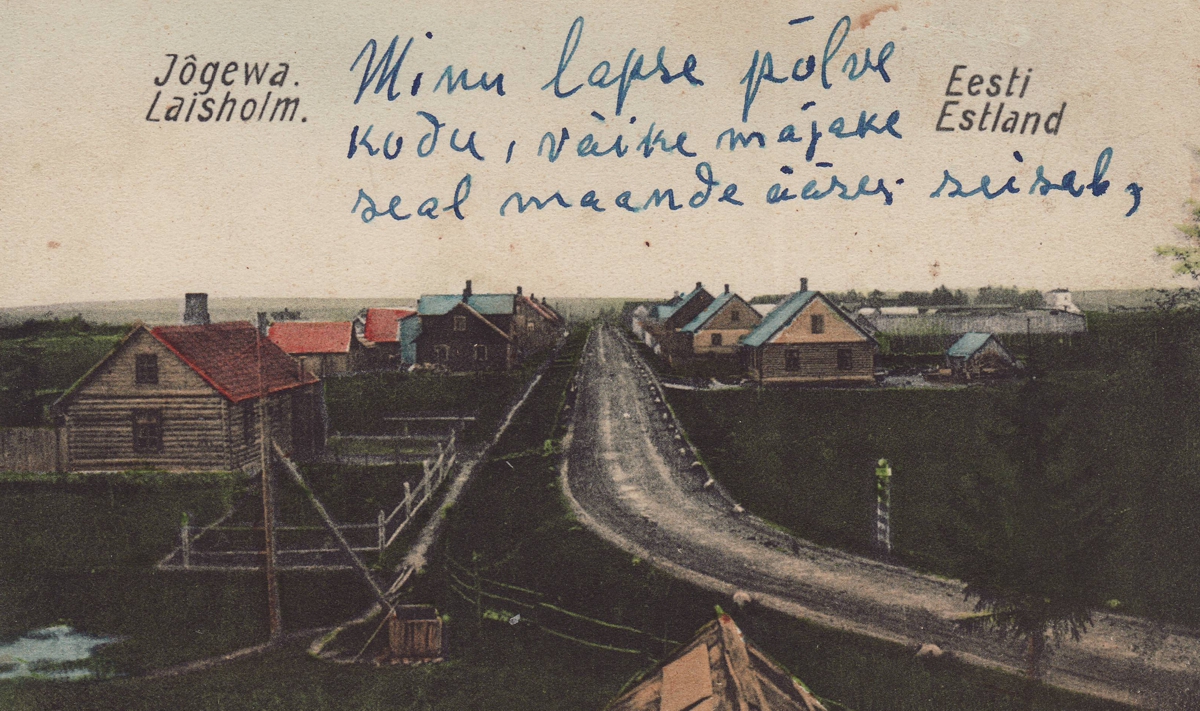 Jôgewa.
Laisholm.
Minu lapse põlve
kodu, väike májake
seal maande ääres seisab,
Eesti
Estland